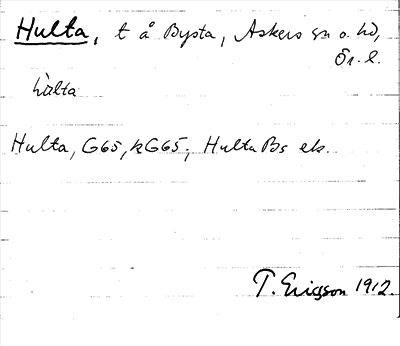 Hulta, t å Bysta, Askers sn o. hd,
Ör. l.
hùlta
Hulta, G65, kG65; Hulta Bs ek.
T. Ericsson 1912.